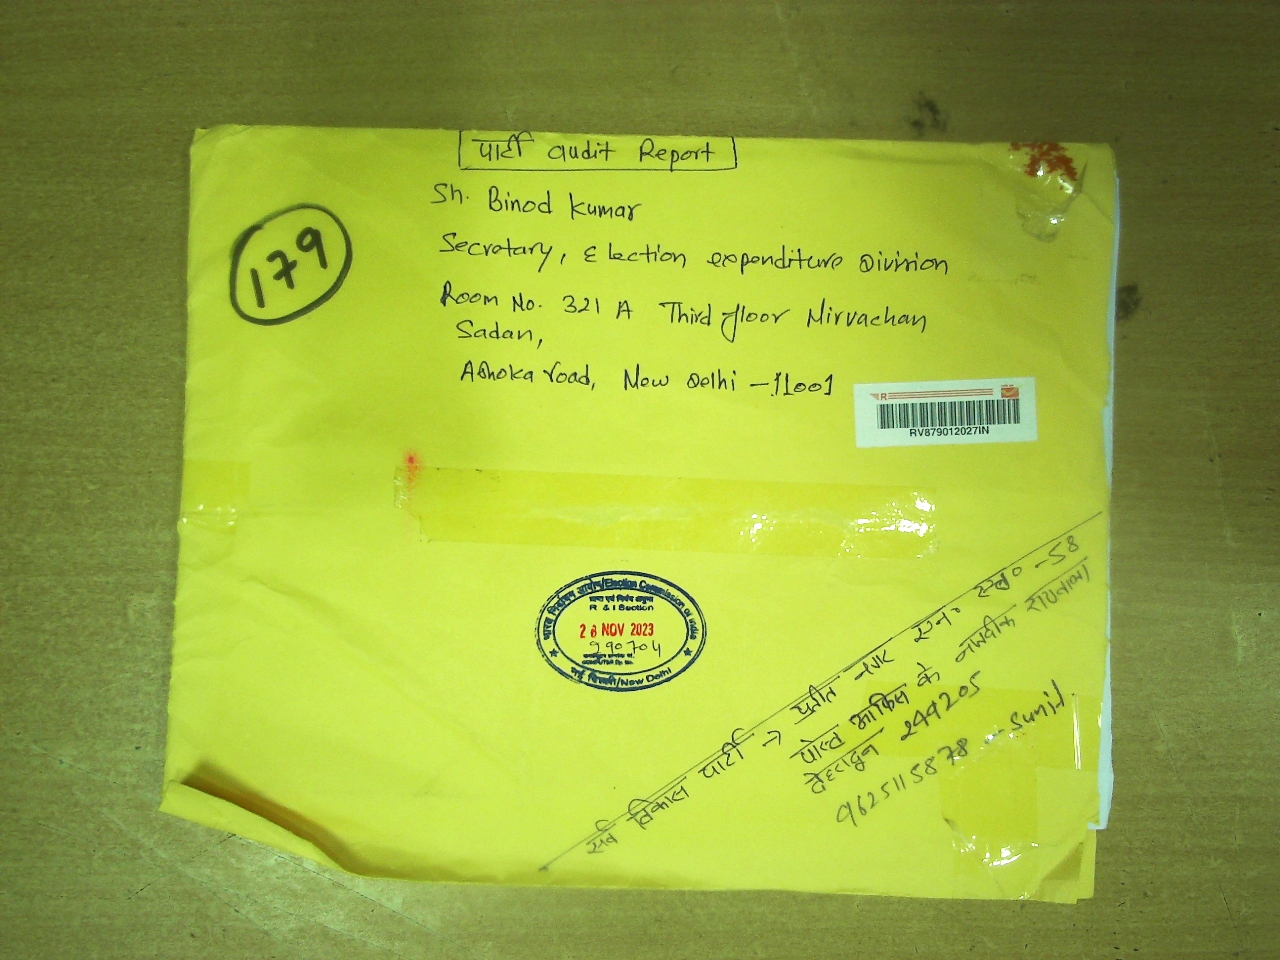 पार्टी audit Report
Sh. Binod Kumar
179
Secretary, Election expenditure Division
Room No. 321 A Third floor Nirvachan
Sadan,
Ashoka road, New Delhi - 11001
R
RV879012027IN
भारत निर्वाचन आयोग/Election Commission of India
R & I Section
28 NOV 2023
290704
नई दिल्ली/New Delhi
सर्व विकास पार्टी → प्रतीत नगर एन० एच० -58
पोस्ट आफिस के नजदीक रायवाला
देहरादून 249205
9625115878 - Sunil